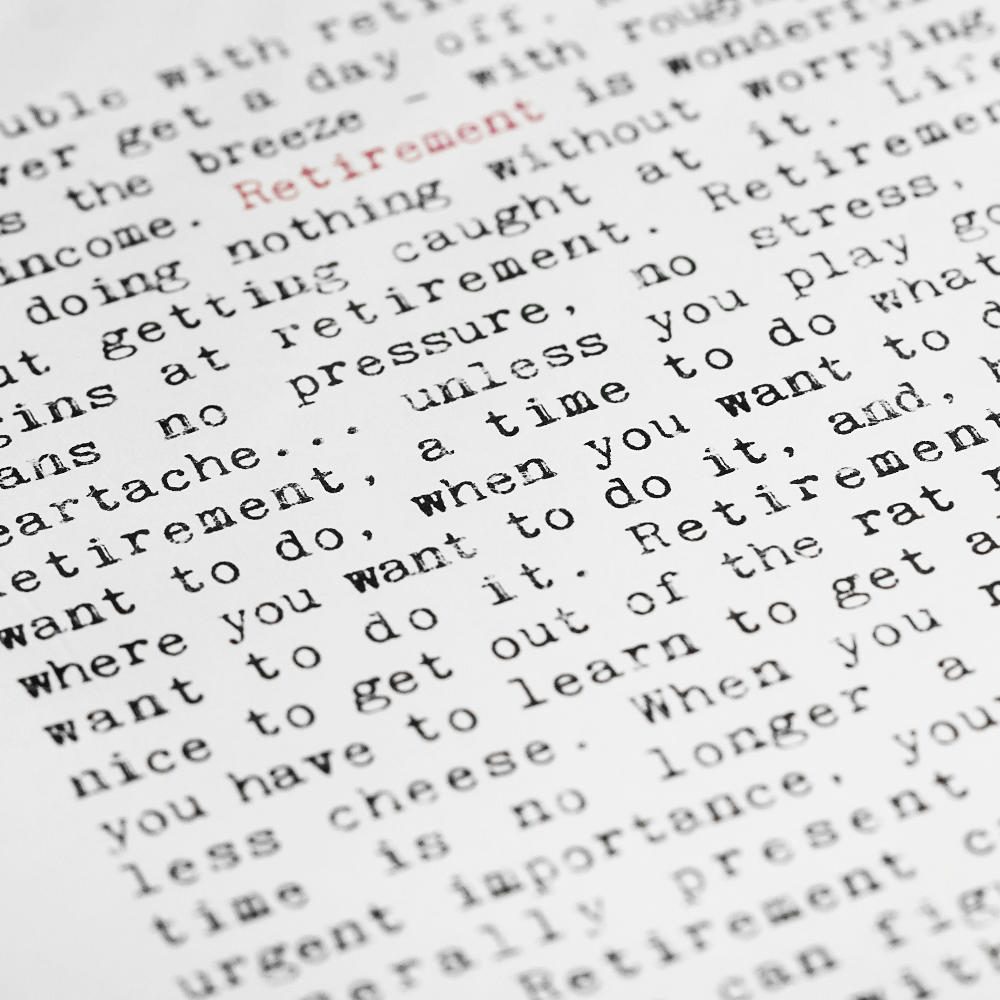 uble with reti
ver get a day off.
s the breeze - with rough
income. Retirement is wonderf
doing nothing without worrying
ut getting caught at it. Life
gins at retirement. Retiremen
ans no pressure, no stress,
eartache... unless you play go
retirement, a time to do what
want to do, when you want to d
where you want to do it, and,
want to do it. Retirement
nice to get out of the rat
you have to learn to get a
less cheese. When you
time is no longer a
urgent importance, you
erally present
Retirement c
can fig
with